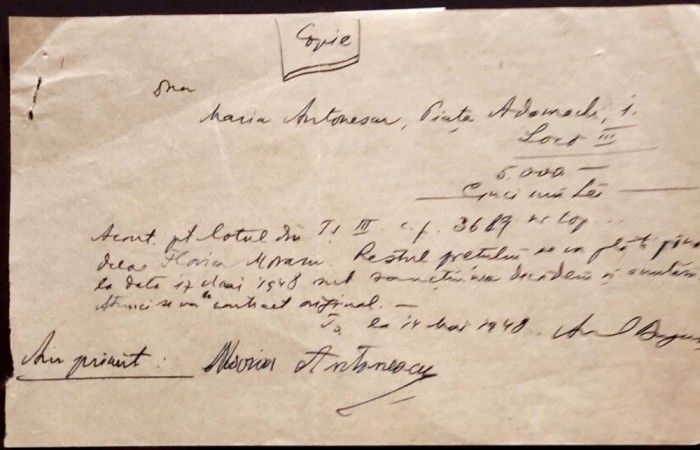 Copie
Dna
Maria Antonescu, Piața Adamachi, 1.
Loco III
5.000 —
Cinci mii Lei
Acont. pt lotul din Tş. III c.f. 3689 nr top...
dela Florica Moraru. Restul prețului se va plăti până
la data 17 Mai 1948 sub sancțiunea decăderii și
Atunci se va contract original. —
la 14 Mai 1948.
Am primit: Maria Antonescu